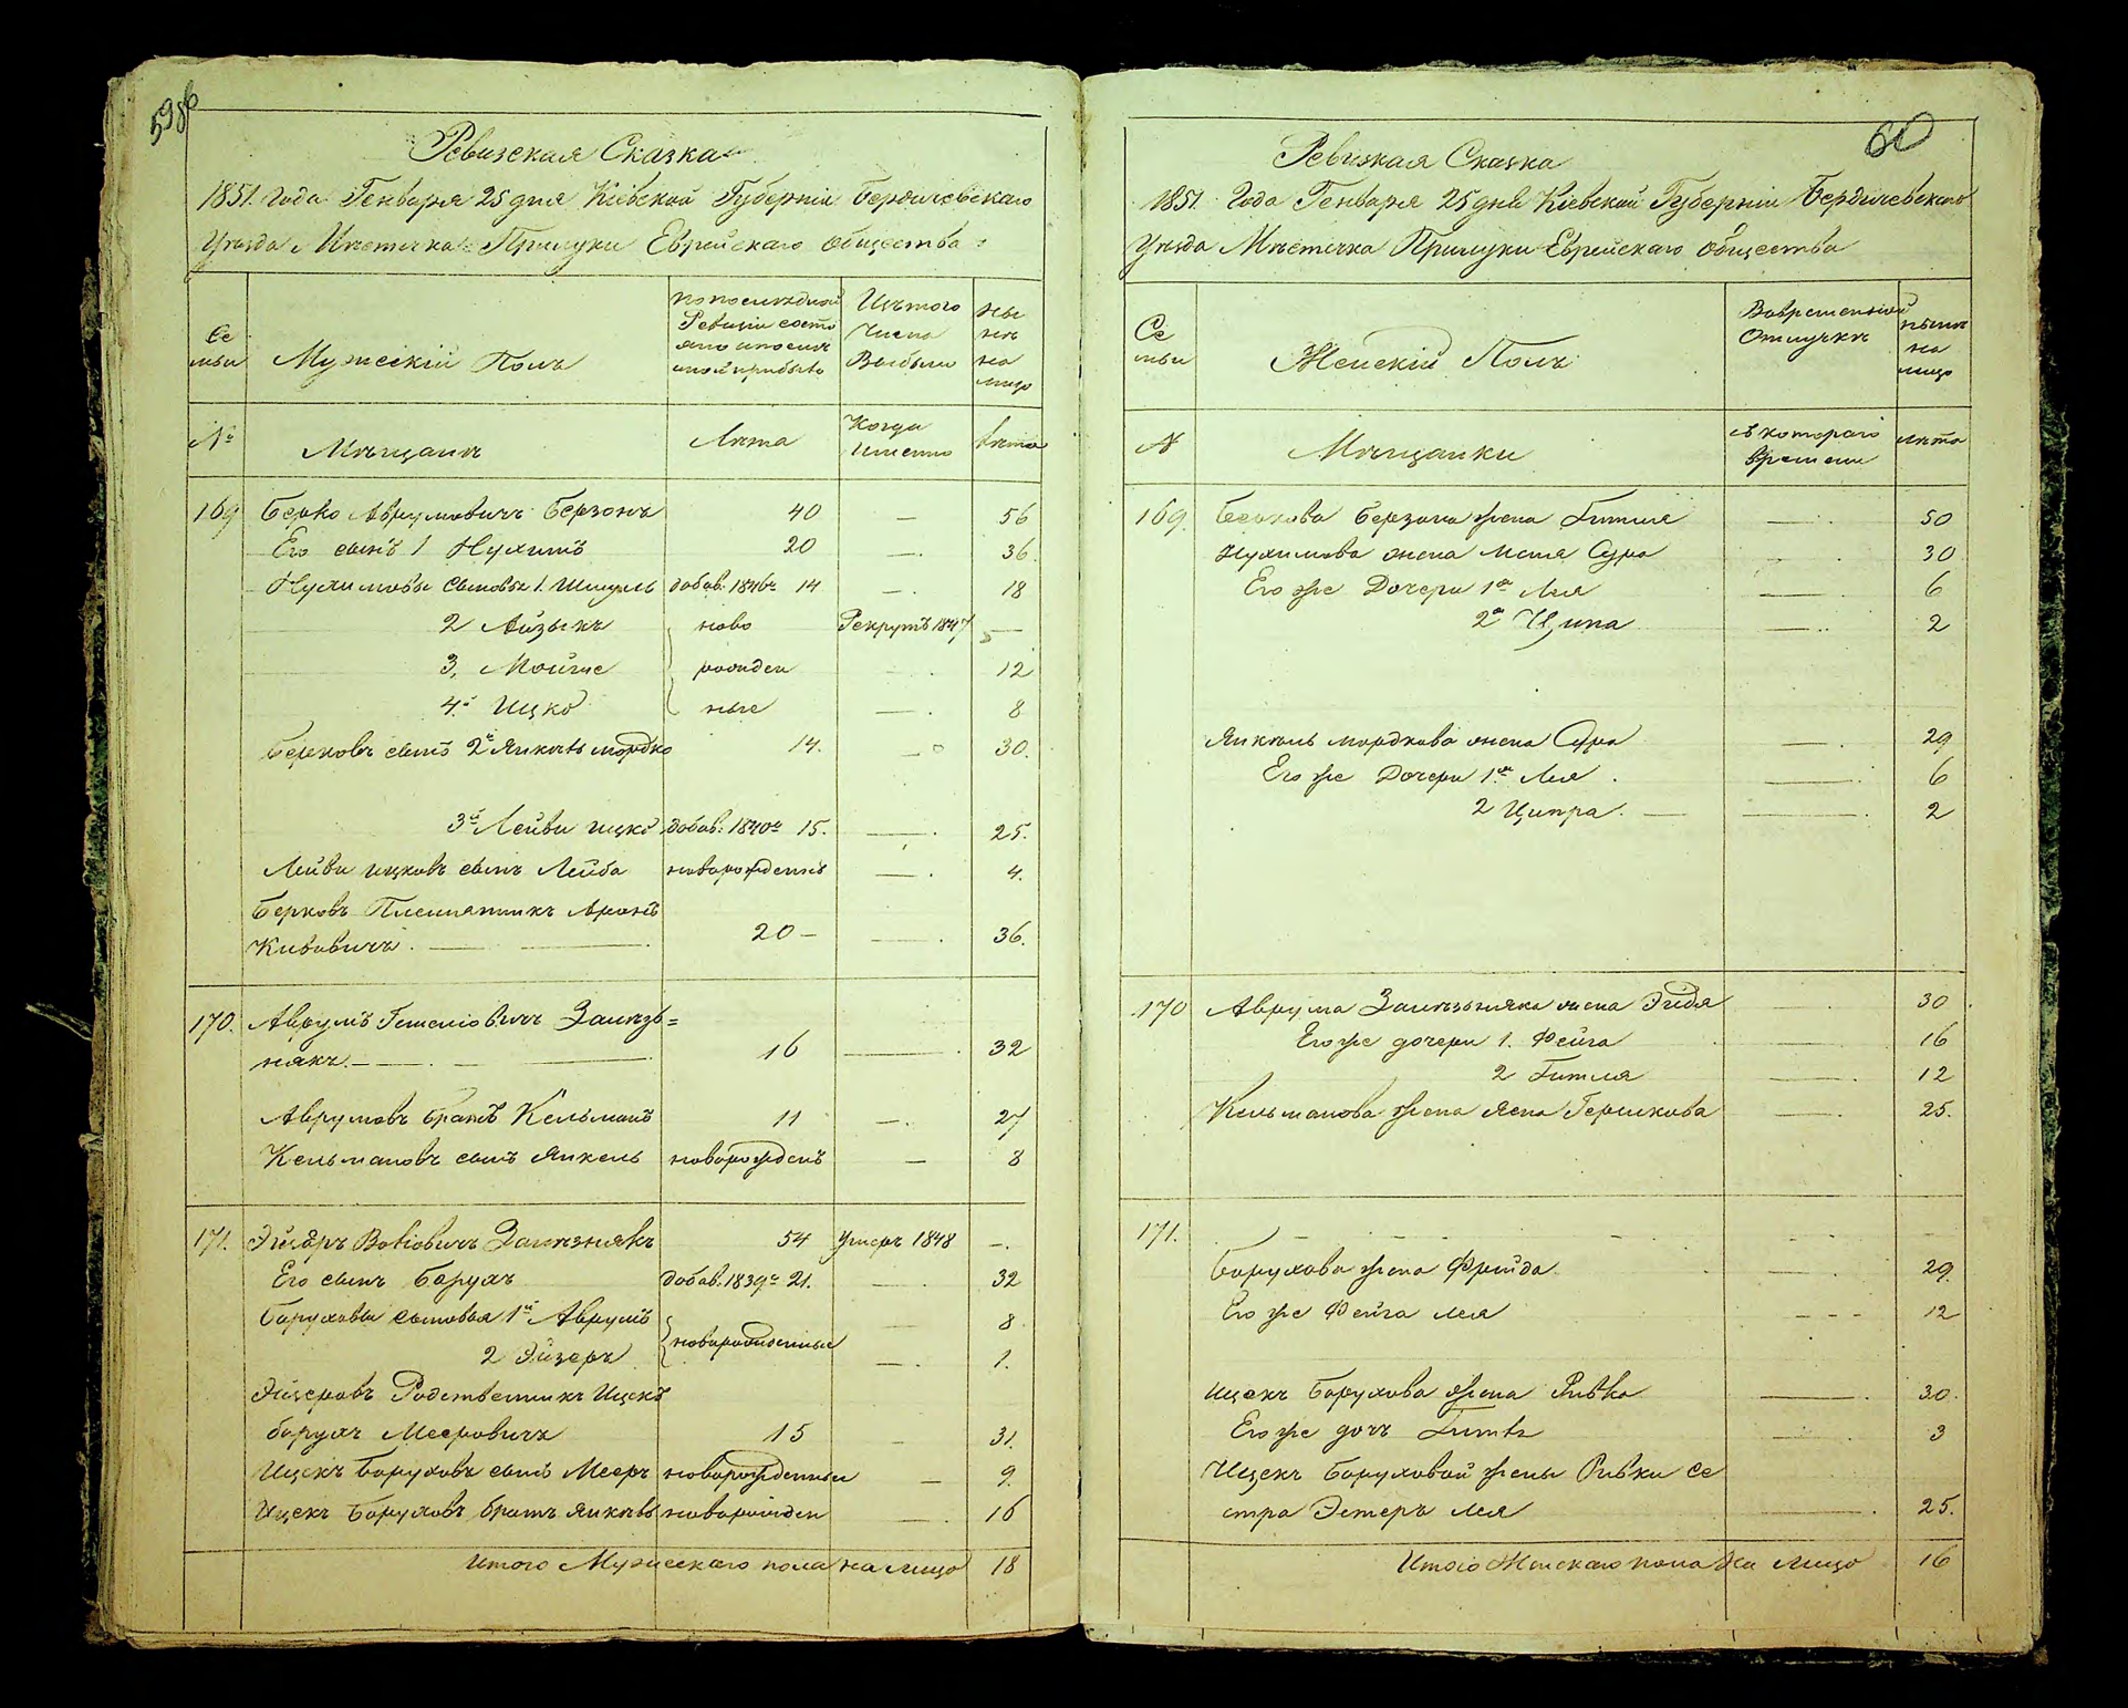 59об
Ревизская Сказка
1851. года Генваря 25 дня Кіевской Губерніи Бердичевскаго
Уѣзда Мѣстечка Прилуки Еврейскаго общества
Се
мьи
Мужескій Полъ
по послѣдней
Ревизіи состо
яло и послѣ
оной прибыло
Изъ того
Числа
Выбыли
Ны
нѣ
на
лицо
№
Мѣщане
Лѣта
Когда
Именно
Лѣта
169 Берко Аврумовичъ Берзонъ 40 — 56
Его сынъ 1 Нухимъ 20 — 36
Нухимовы сыновья 1. Шмуль добав. 1846го 14 — 18
2 Айзыкъ ново Рекрутъ 1847 —
3, Мойше рожден 12
4й Ицко ные — 8
Берковъ сынъ 2й Янкель мордко 14. — 30.
3й Лейви ицко добав. 1840го 15. — 25.
Лейви ицковъ сынъ Лейба новорожденъ — 4.
Берковъ Племянникъ Аронъ
Кивовичъ. — 20 — — 36.
170. Аврумъ Гешелiовичъ Зализь=
някъ. — 16 — 32
Аврумовъ братъ Кельманъ 11 — 27
Кельмановъ сынъ Янкель новорожденъ — 8
171. Эйзеръ Вовіовичъ Зализнякъ 54 умеръ 1848 —.
Его сынъ Борухъ добав. 1839го 21. — 32
Боруховы сыновья 1й Аврумъ новорожденные — 8
2 Эйзеръ — 1.
Эйзеровъ Родственникъ Ицекъ
борухъ Мееровичъ 15 — 31.
Ицекъ Боруховъ сынъ Мееръ новорожденны — 9.
Ицекъ Боруховъ братъ Янкель новорожден — 16
Итого Мужескаго пола на лицо 18
60
Ревизкая Сказка
1851. Года Генваря 25 дня Кіевской Губерніи Бердичевскаго
Уѣзда Мѣстечка Прилуки Еврейскаго Общества
Се
мьи
Женскій Полъ
Вовременной
Отлучкѣ
нынѣ
на
лицо
№
Мѣщанки
съ котораго
времени
лѣта
169. Беркова Берзона жена Гитля — 50
Нухимова жена Мотя Сура 30
Его же Дочери 1я Лея — 6
2я Ципа — 2
Янкель мордкова жена Сура — 29
Его же Дочери 1я Лея. — 6
2 Ципра. — — 2
170 Аврума Зализьняка жена Эидя — 30
Его же дочери 1. Фейга — 16
2 Гитля — 12
Кельманова жена Яспа Гершкова — 25.
171. - - - - - -
Борухова жена Фрейда — 29.
Его же Фейга лея - - - 12
Ицекъ Борухова жена Ривка — 30.
Его же дочъ Гитля — 3
Ицекъ Боруховой жены Ривки се
стра Эстеръ лея — 25.
Итого Женскаго пола на лицо 16